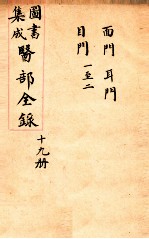 面門 耳門
目門 一至二
圖書
集成
醫部全錄
十九册